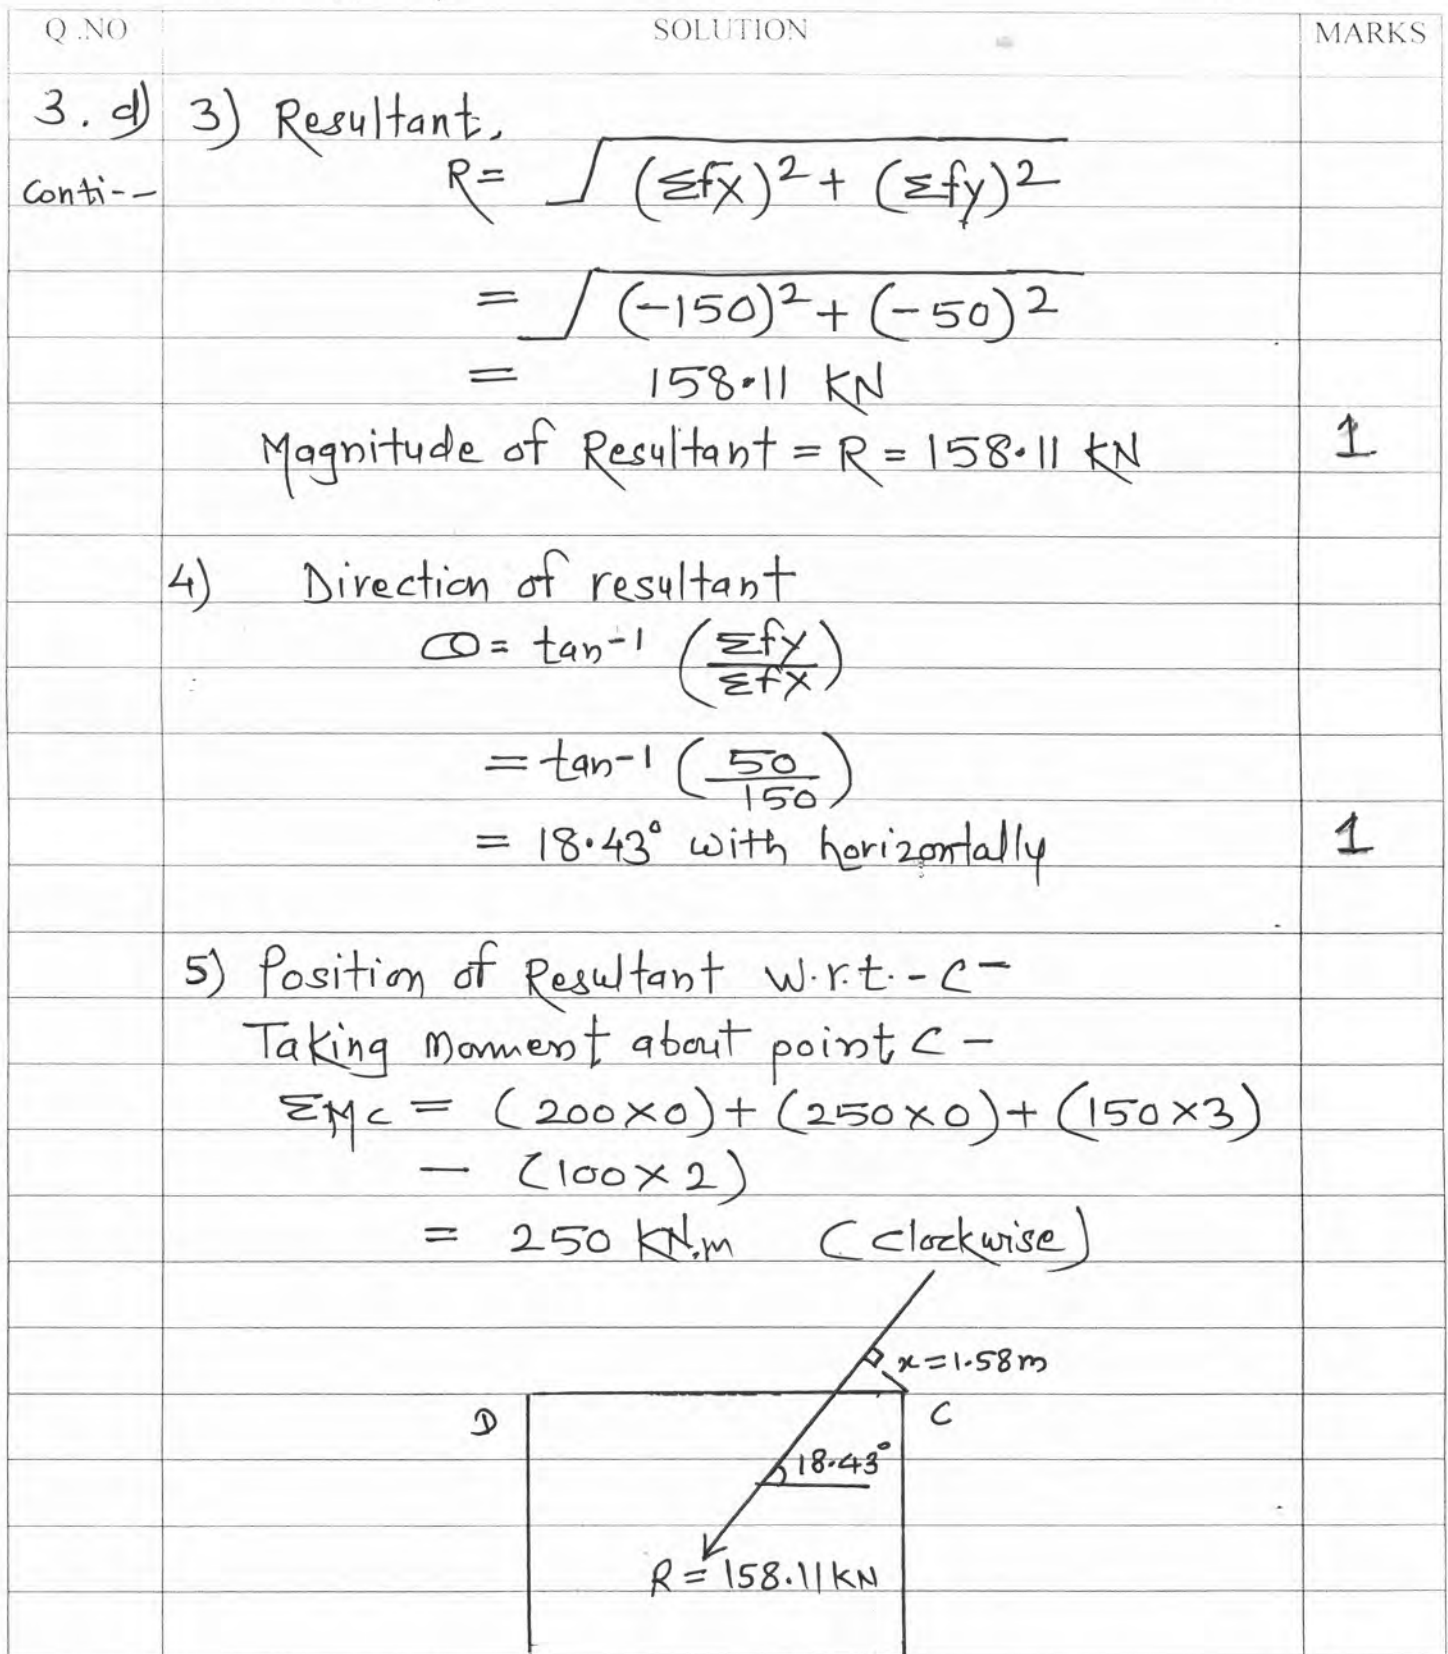 Q .NO SOLUTION MARKS
3. d) 3) Resultant,
conti-- R= √(Σfx)² + (Σfy)²
= √(-150)² + (-50)²
= 158.11 KN
Magnitude of Resultant = R = 158.11 KN 1
4) Direction of resultant
Θ = tan-1 (Σfy/Σfx)
= tan-1 (50/150)
= 18.43° with horizontally 1
5) Position of Resultant w.r.t.-C-
Taking Moment about point C -
ΣMc = (200×0)+(250×0)+(150×3)
- (100×2)
= 250 KN.m (Clockwise)
x=1.58m
D C
18.43°
R = 158.11KN